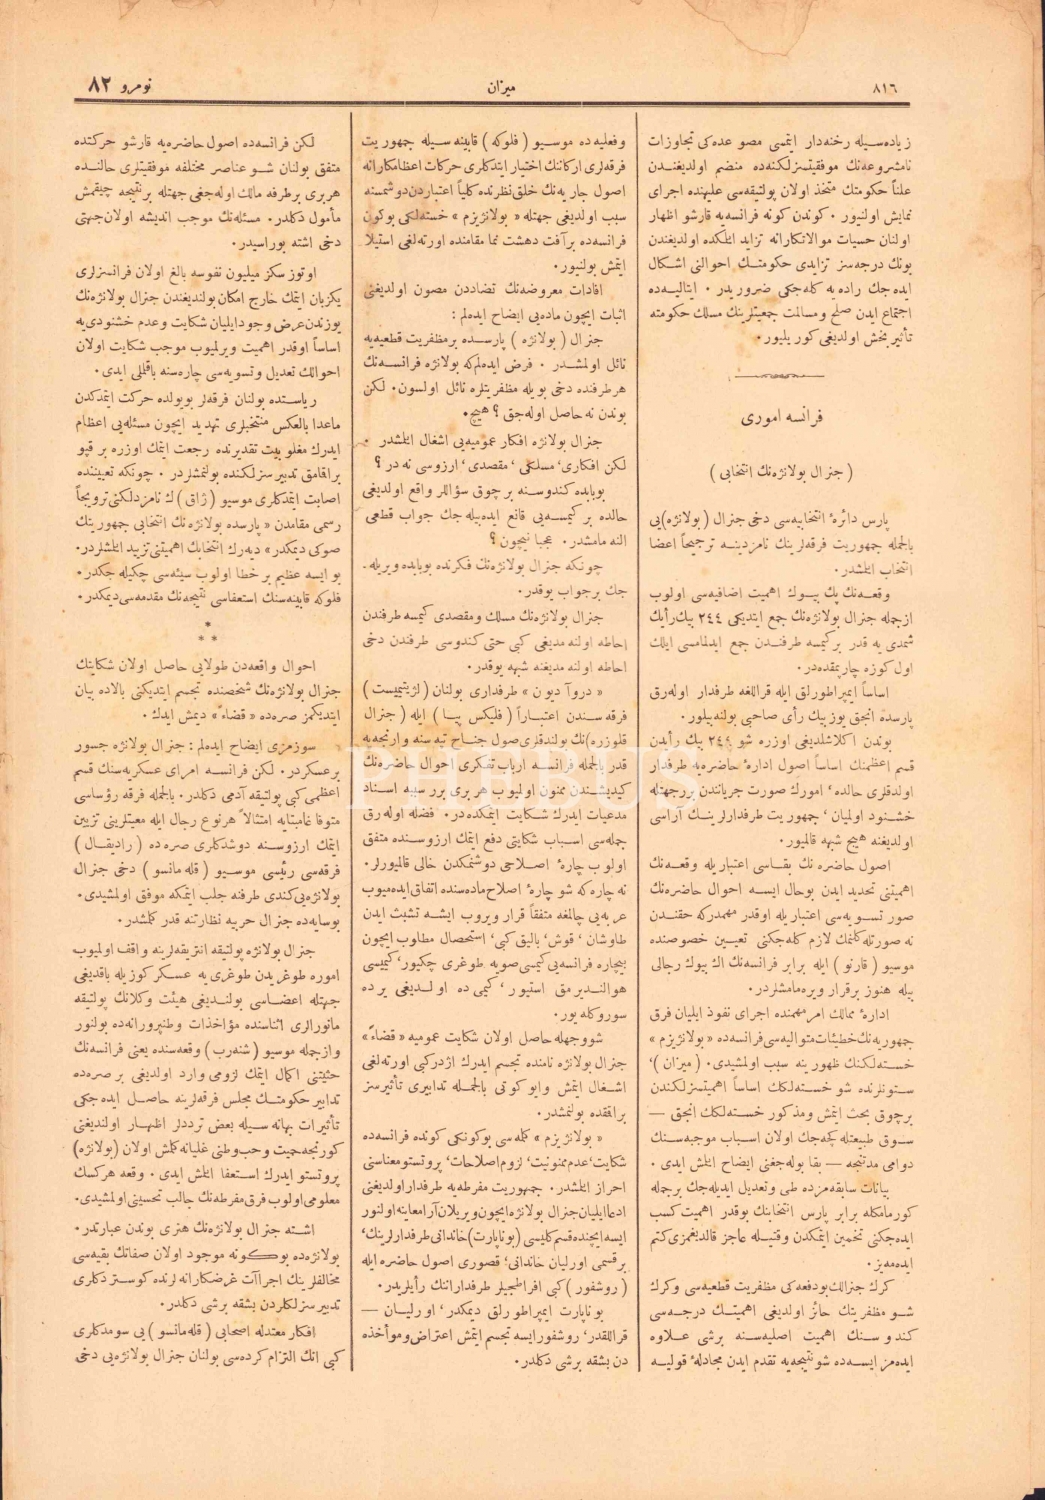 ٨١٦
میزان
نومرو ٨٢
زیاده‌سیله رخنه‌دار ایتمسی مصو عده‌کی تجاوزات
نامشروعه‌نك موفقیتسزلكنده منضم اولدیغندن
علناً حكومتك متخذ اولان پولتیقه‌سی علیهنده اجرای
نمایش اولنیور . كوندن كونه فرانسه‌یه قارشو اظهار
اولنان حسیات موالاتكارانه تزاید ائلكده اولدیغندن
بونك درجه‌سز تزایدی حكومتك احوالنی اشكال
ایده‌جك راده‌یه كله‌جكی ضروریدر . ایتالیه‌ده
اجتماع ایدن صلح و مسالمت جمعیتلرینك مسلك حكومته
تأثیربخش اولدیغی كوریلیور.
فرانسه اموری
( جنرال بولانژه‌نك انتخابی )
پارس دائرۀ انتخابیه‌سی دخی جنرال ( بولانژه )یی
بالجمله جمهوریت فرقه‌لرینك نامزدینه ترجیحاً اعضا
انتخاب ائلشدر.
وقعه‌نك پك بیوك اهمیت اضافیه‌سی اولوب
ازجمله جنرال بولانژه‌نك جمع ایتدیكی ٢٤٤ بیك رأیك
شمدی یه قدر بر كیمسه طرفندن جمع ایدلمامسی ایلك
اول كوزه چارپمقده‌در.
اساساً ایمپراطورلق ایله قراللغه طرفدار اوله‌رق
پارسده انجق یوز بیك رأی صاحبی بولنه‌بیلور.
بوندن اكلاشلدیغی اوزره شو ٢٤٤ بیك رأیدن
قسم اعظمنك اساساً اصول ادارۀ حاضره‌یه طرفدار
اولدقلری حالده ، امورك صورت جریانندن بر رجهتله
خشنود اولمیان ، جمهوریت طرفدارلرینك آراسی
اولدیغنه هیچ شبهه قالمیور.
اصول حاضره نك بقاسی اعتباریله وقعه‌نك
اهمیتنی تحدید ایدن بوحال ایسه احوال حاضره‌نك
صور تسویه‌سی اعتباریله اوقدر مهمدركه حقندن
نه صورتله كلنمك لازم كله‌جكنی تعیین خصوصنده
موسیو ( قارنو ) ایله برابر فرانسه‌نك اك بیوك رجالی
بیله هنوز برقرار ویره‌مامشلردر.
ادارۀ ممالك امر مهمنده اجرای نفوذ ایلیان فرق
جمهوریه‌نك خطیئات متوالیه‌سی فرانسه‌ده « بولانژیزم »
خسته‌لكنك ظهورینه سبب اولمشیدی. ( میزان )،
ستونلرنده شو خسته‌لكك اساساً اهمیتسزلكندن
برچوق بحث ایتمش ومذكور خسته‌لكك انجق —
سوق طبیعتله كچه‌جك اولان اسباب موجبه‌سنك
دوامی مدتنجه — بقا بوله‌جغنی ایضاح ائلش ایدی .
بیانات سابقه‌مزده طی وتعدیل ایدیله‌جك برجمله
كورمامكله برابر پارس انتخابنك بوقدر اهمیت كسب
ایده‌جكنی تخمین ایتمكدن وقتیله عاجز قالدیغمزی كتم
ایده‌مه‌یز.
كرك جنرالك بودفعه‌كی مظفریت قطعیه‌سی وكرك
شو مظفریتك حائز اولدیغی اهمیتك درجه‌سی
كندوسنك اهمیت اصلیه‌سنه برشی علاوه
ایده‌مز ایسه‌ده شو نتیجه‌یه تقدم ایدن مجادلۀ قولیه
وفعلیه ده موسیو ( فلوكه ) قابینه سیله جمهوریت
فرقه‌لری اركاننك اختیار ایتدكلری حركات اعظامكارانه
اصول جاریه‌نك خلق نظرنده كلیاً اعتباردن دوشمسنه
سبب اولدیغی جهتله « بولانژیزم » خسته‌لكی بوكون
فرانسه‌ده بر آفت دهشت نما مقامنده اورته‌لغی استیلا
ایتمش بولنیور.
افادات معروضه‌نك تضاددن مصون اولدیغنی
اثبات ایچون ماده‌یی ایضاح ایده‌لم :
جنرال ( بولانژه ) پارسده برمظفریت قطعیه‌یه
نائل اولمشدر . فرض ایده‌لم‌كه بولانژه فرانسه‌نك
هرطرفنده دخی بویله مظفریتلره نائل اولسون. لكن
بوندن نه حاصل اوله‌جق ؟ هیچ.
جنرال بولانژه افكار عمومیه‌یی اشغال ائلشدر .
لكن افكاری ، مسلكی ، مقصدی ، ارزوسی نه در ؟
بوبابده كندوسنه بر چوق سؤاللر واقع اولدیغی
حالده بر كیمسه‌یی قانع ایده‌بیله‌جك جواب قطعی
النه مامشدر . عجبا نیچون ؟
چونكه جنرال بولانژه‌نك فكرنده بوبابده ویریله-
جك برجواب یوقدر.
جنرال بولانژه‌نك مسلك ومقصدی كیمسه طرفندن
احاطه اولنه مدیغی كبی حتی كندوسی طرفندن دخی
احاطه اولنه مدیغنه شبهه یوقدر.
« دروآ دیون » طرفداری بولنان ( لژیتیمیست )
فرقه سندن اعتباراً ( فلیكس پیا ) ایله ( جنرال
قلوزره )نك بولندقلری صول جناح تپه سنه وارنجه‌یه
قدر بالجمله فرانسه ارباب تفكری احوال حاضره‌نك
كیدیشندن ممنون اولمیوب هر بری برر سببه اسناد
مدعیات ایدرك شكایت ایتمكده‌در . فضله اوله‌رق
جمله‌سی اسباب شكایتی دفع ایتمك ارزوسنده متفق
اولوب چارۀ اصلاحی دوشنمكدن خالی قالمیورلر.
نه چاره كه شو چارۀ اصلاح ماده‌سنده اتفاق ایده‌میوب
عربه‌یی چالمغه متفقاً قرار ویروب ایشه تشبث ایدن
طاوشان ، قوش ، بالیق كبی ، استحصال مطلوب ایچون
بیچاره فرانسه‌یی كیمیسی صویه طوغری چكیور، كیمیسی
هوالندیرمق استیور ، كیمی ده اولدیغی یرده
سوروكله یور.
شو وجهله حاصل اولان شكایت عمومیه « قضاءً »
جنرال بولانژه نامنده تجسم ایدرك اژدركبی اورته‌لغی
اشغال ایتمش وایو كوتی بالجمله تدابیری تأثیرسز
براقمده بولنمشدر.
« بولانژیزم » كله‌سی بوكونكی كونده فرانسه‌ده
شكایت ، عدم ممنونیت ، لزوم اصلاحات ، پروتستو معناسنی
احراز ائلشدر. جمهوریت مفرطه‌یه طرفدار اولدیغنی
ادعا ایلیان جنرال بولانژه ایچون ویریلان آرا معاینه اولنور
ایسه ایچنده قسم كلیسی ( بوناپارت ) خاندانی طرفدارلرینك ،
برقسمی اورلیان خاندانی ، قصوری اصول حاضره ایله
( روشفور ) كبی افراطجیلر طرفدارانك رأیلریدر.
بوناپارت ایمپراطورلق دیمكدر ، اورلیان —
قراللقدر ، روشفور ایسه تجسم ایتمش اعتراض ومؤاخذه
دن بشقه برشی دكلدر.
لكن فرانسه‌ده اصول حاضره‌یه قارشو حركتده
متفق بولنان شو عناصر مختلفه موفقیتلری حالنده
هربری برطرفه مالك اوله‌جغی جهتله برنتیجه چیقمش
مأمول دكلدر. مسئله‌نك موجب اندیشه اولان جهتی
دخی اشته بوراسیدر.
اوتوز سكز میلیون نفوسه بالغ اولان فرانسزلری
یكزبان ایتمك خارج امكان بولندیغندن جنرال بولانژه‌نك
یوزندن عرض وجود ایلیان شكایت وعدم خشنودی‌یه
اساساً اوقدر اهمیت ویرلمیوب موجب شكایت اولان
احوالك تعدیل وتسویه‌سی چاره‌سنه باقلملی ایدی.
ریاستده بولنان فرقه‌لر بویولده حركت ایتمدكدن
ماعدا بالعكس منتخبلری تهدید ایچون مسئله‌یی اعظام
ایدرك مغلوبیت تقدیرنده رجعت ایتمك اوزره بر قپو
براقمامق تدبیرسزلكنده بولنمشلردر . چونكه تعییننده
اصابت ایتمدكلری موسیو ( ژاق )ك نامزدلكنی ترویجاً
رسمی مقامدن « پارسده بولانژه‌نك انتخابی جمهوریتك
صوكی دیمكدر » دیه‌رك انتخابك اهمیتنی تزیید ائلشلردر.
بو ایسه عظیم بر خطا اولوب سیئه‌سی چكیله جكدر.
فلوكه قابینه‌سنك استعفاسی نتیجه‌نك مقدمه‌سی دیمكدر.
*
* *
احوال واقعه‌دن طولایی حاصل اولان شكایتك
جنرال بولانژه‌نك شخصنده تجسم ایتدیكنی بالاده بیان
ایتدیكمز صره‌ده « قضاءً » دیمش ایدك.
سوزمزی ایضاح ایده‌لم : جنرال بولانژه جسور
برعسكردر. لكن فرانسه امرای عسكریه‌سنك قسم
اعظمی كبی پولتیقه آدمی دكلدر. بالجمله فرقه رؤساسی
متوفا غامبتایه امتثالاً هرنوع رجال ایله معیتلرینی تزیین
ایتمك ارزوسنه دوشدكلری صره ده ( رادیقال )
فرقه‌سی رئیسی موسیو ( قله‌مانسو ) دخی جنرال
بولانژه‌یی كندی طرفنه جلب ایتمكه موفق اولمشیدی.
بوسایه‌ده جنرال حربیه نظارتنه قدر كلمشدر.
جنرال بولانژه پولتیقه انتریقه‌لرینه واقف اولمیوب
اموره طوغریدن طوغری یه عسكر كوزیله باقدیغی
جهتله اعضاسی بولندیغی هیئت وكلانك پولتیقه
مانورالری اثناسنده مؤاخذات وطنپرورانه‌ده بولنور
وازجمله موسیو ( شنه‌رب ) وقعه‌سنده یعنی فرانسه‌نك
حیثیتنی اكمال ایتمك لزومی وارد اولدیغی بر صره‌ده
تدابیر حكومتك مجلس فرقه‌لرینه حاصل ایده‌جكی
تأثیرات بهانه سیله بعض ترددلر اظهار اولندیغنی
كورنجه حمیت وحب وطنی غلیانه كلمش اولان ( بولانژه )
پروتستو ایدرك استعفا ائلش ایدی . وقعه هركسك
معلومی اولوب فرق مفرطه‌نك جالب تحسینی اولمشیدی.
اشته جنرال بولانژه‌نك هنری بوندن عبارتدر.
بولانژه‌ده بوكونه موجود اولان صفاتك بقیه‌سی
مخالفلرینك اجراآت غرضكارانه لرنده كوستردكلری
تدبیرسزلكلردن بشقه برشی دكلدر.
افكار معتدله اصحابی ( قله‌مانسو ) یی سومدكلری
كبی انك التزام كرده‌سی بولنان جنرال بولانژه‌یی دخی
PHEBUS